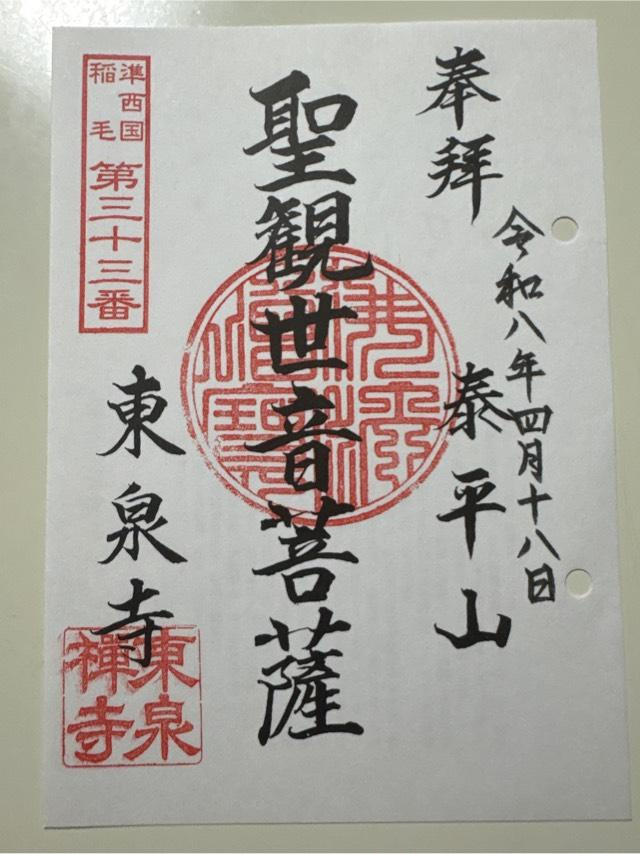 奉拝
令和八年四月十八日
泰平山
聖観世音菩薩
準西国
稲毛
第三十三番
東泉寺
東泉
禅寺